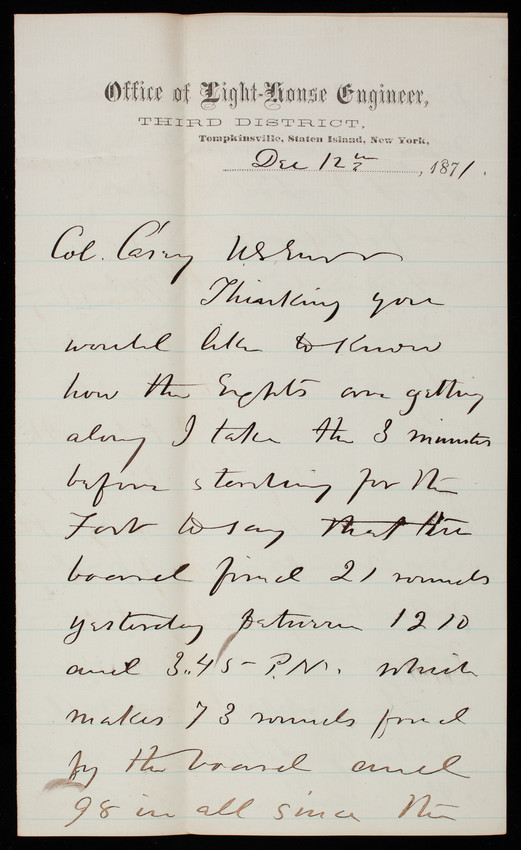 Office of Light-House Engineer,
THIRD DISTRICT,
Tompkinsville, Staten Island, New York,
Dec 12th, 1871.
Col. Casey U.S. Engrs
Thinking you
would like to know
how the Eights are getting
along I take the 3 minutes
before starting for the
Fort to say that the
board fired 21 rounds
yesterday between 12 10
and 3.45 P.M. which
makes 73 rounds fired
by the board and
98 in all since the